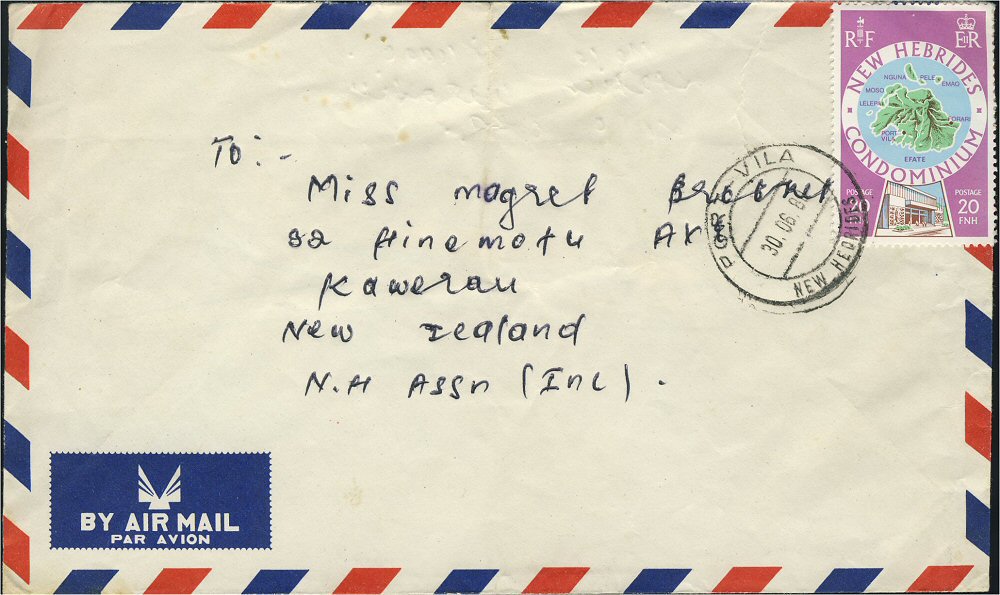 To:-
Miss magret
92 Hinemotu Av
Kawerau
New Zealand
N.H Assn (Inc).
BY AIR MAIL
PAR AVION
RF EIIR
NEW HEBRIDES
CONDOMINIUM
NGUNA PELE
EMAO
MOSO
LELEPA
FORARI
PORT
VILA
EFATE
POSTAGE POSTAGE
20 20
FNH
PORT VILA
30.06.8
NEW HEBRIDES